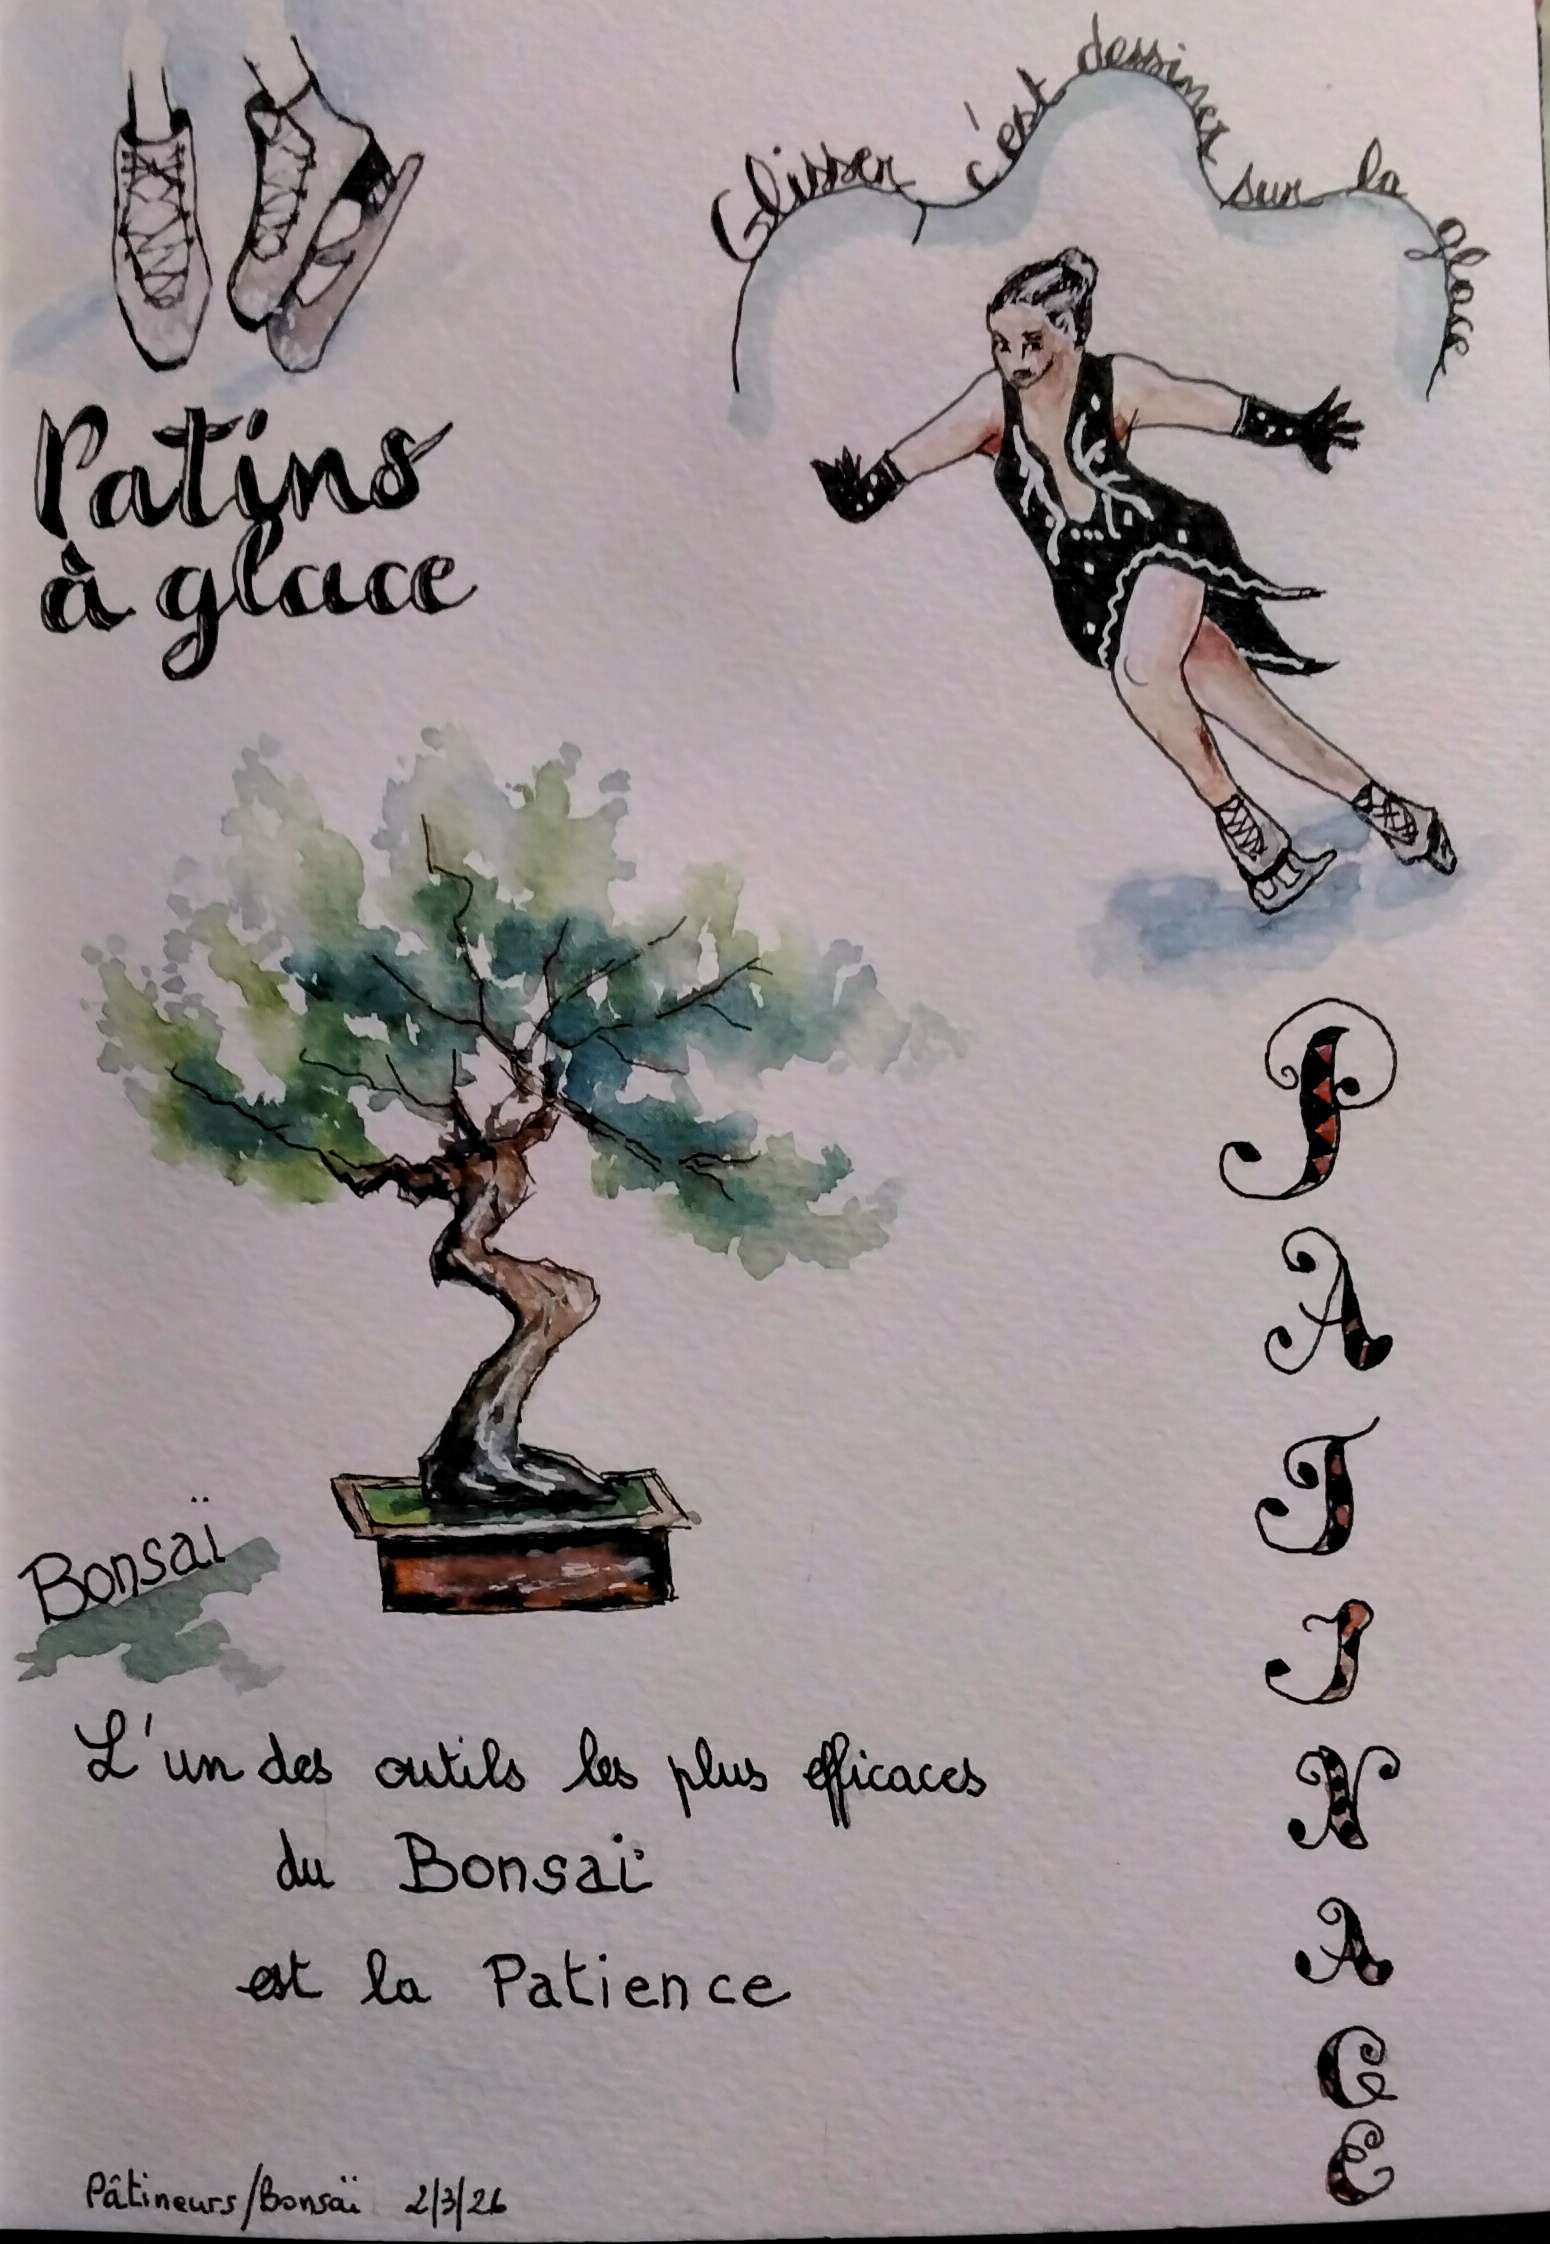 Glisser c'est dessiner sur la glace
Patins
à glace
PATINAGE
Bonsaï
L'un des outils les plus efficaces
du Bonsaï
est la Patience
Pâtineurs/Bonsaï 2/3/26